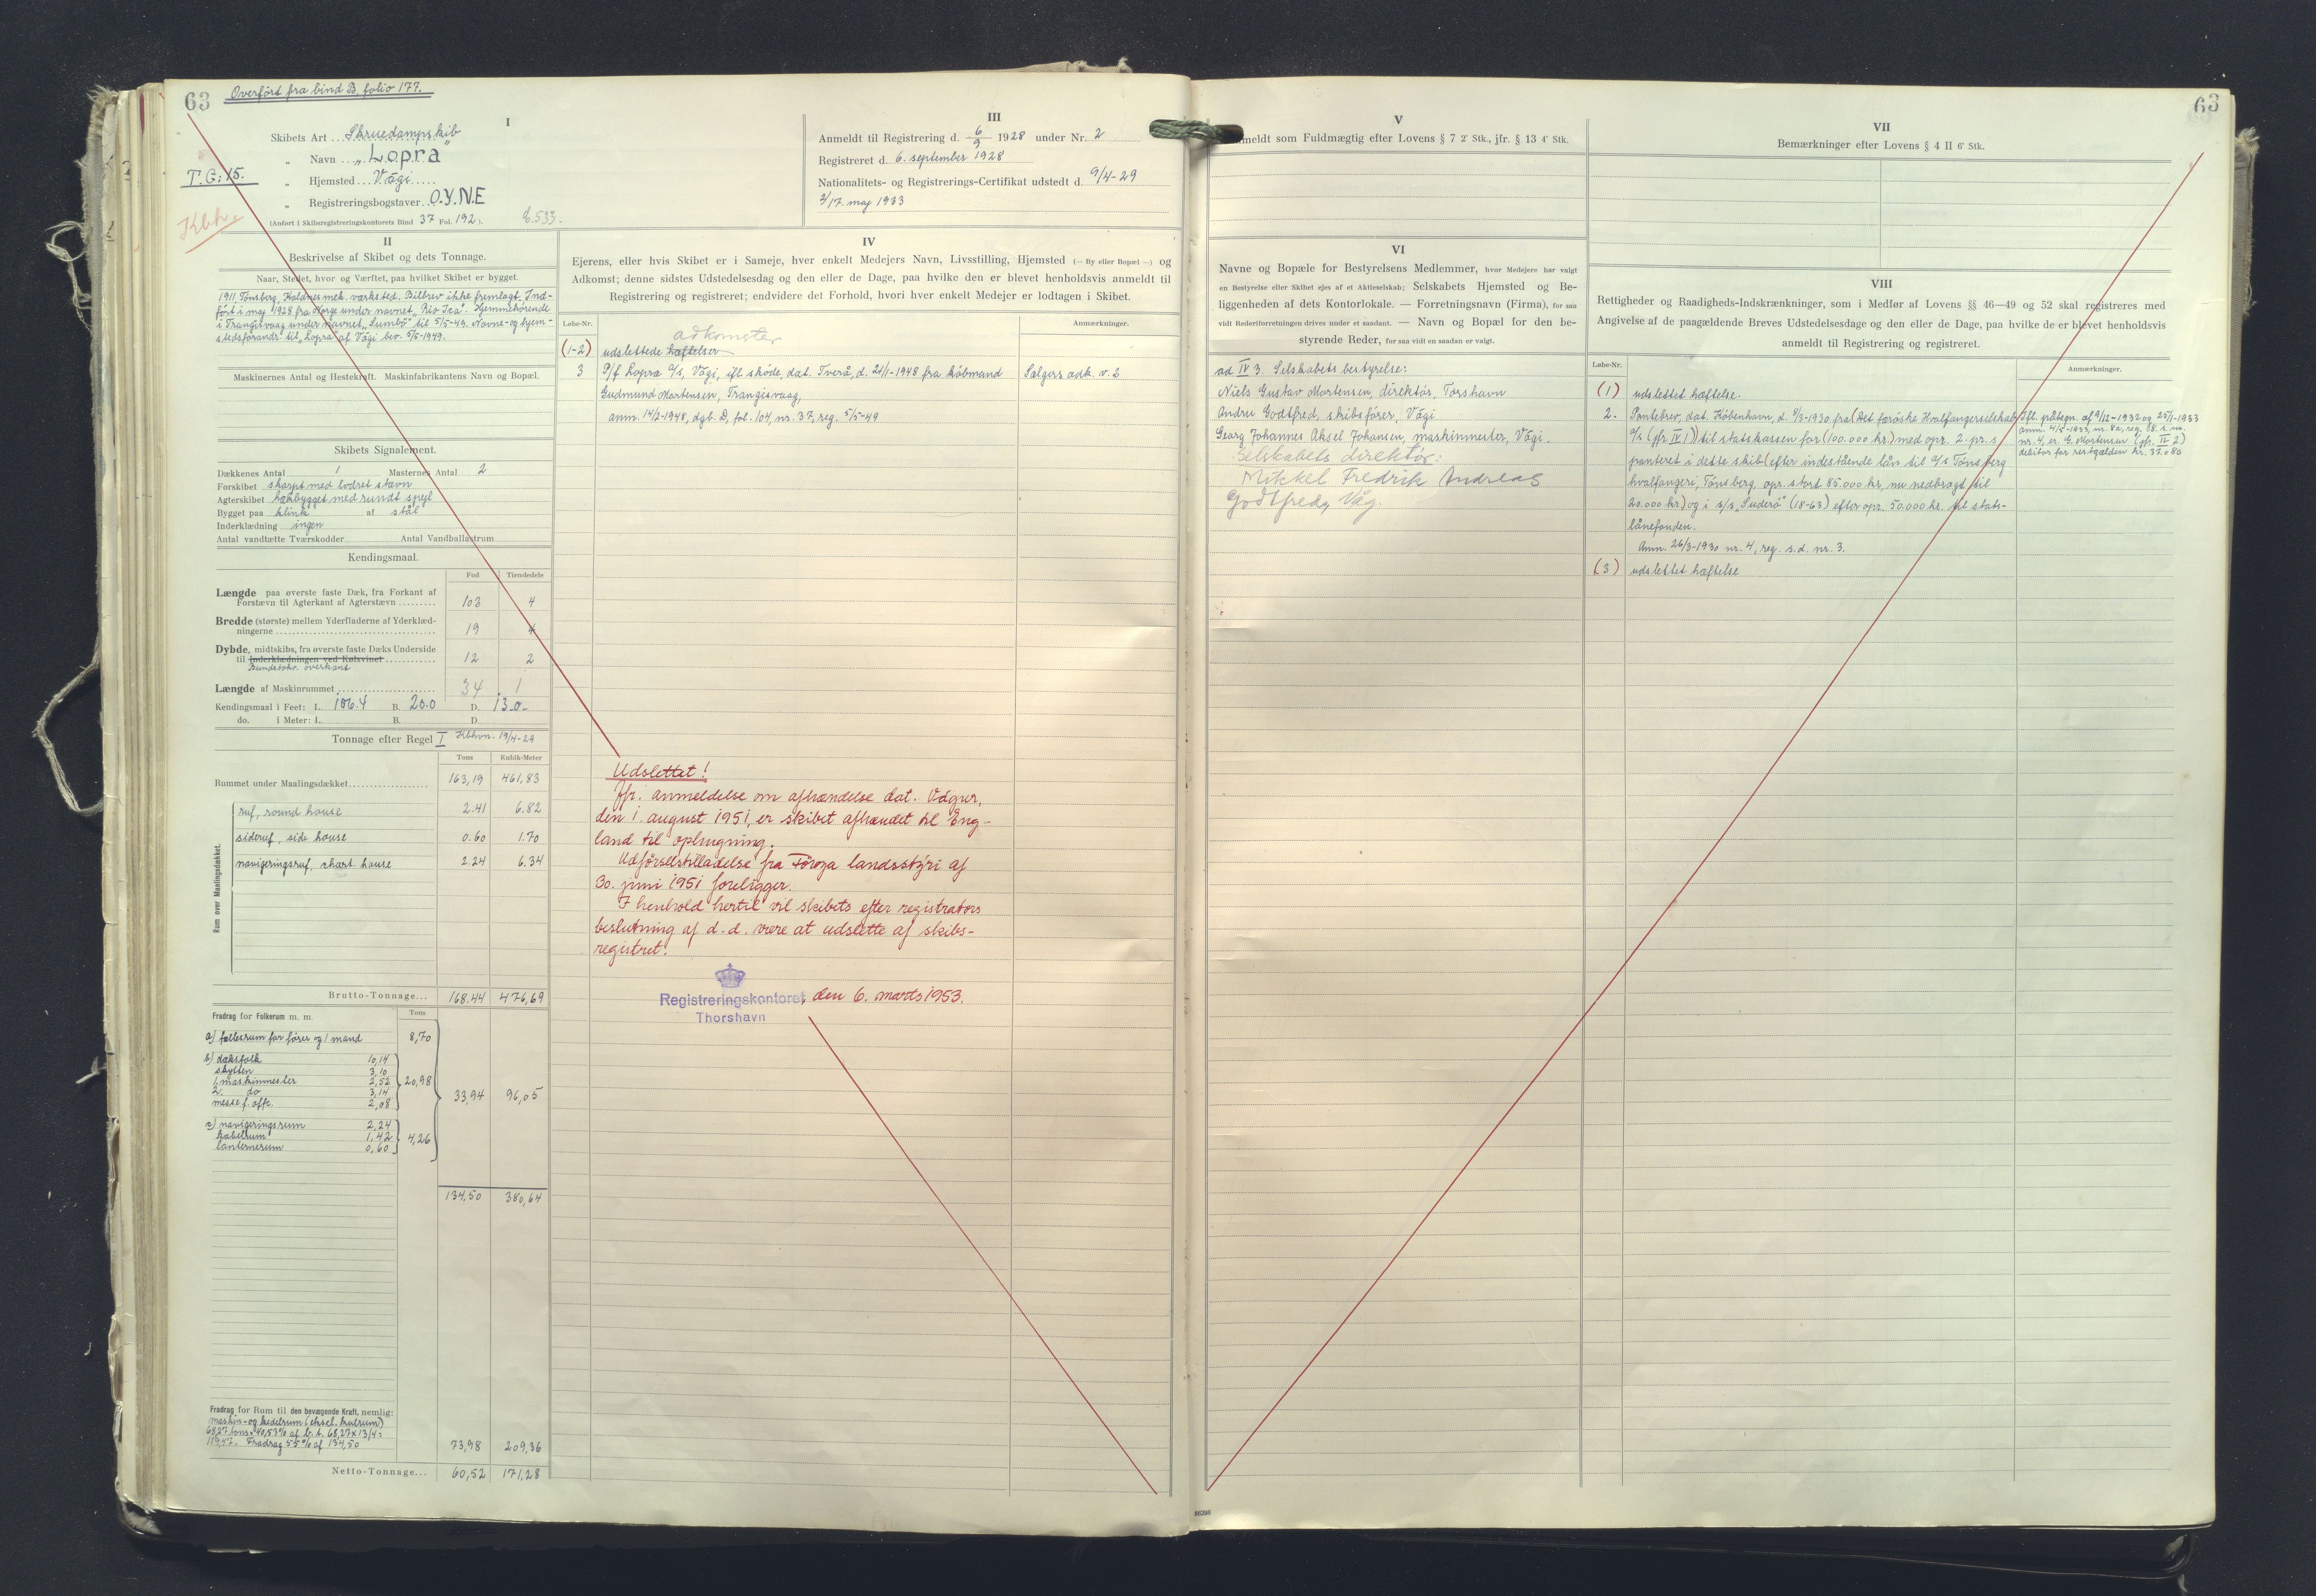 63
Overført fra bind B, folio 177.
I
Skibets Art Skruedampskib
" Navn "Lopra"
T.G: 15.
" Hjemsted Vági
" Registreringsbogstaver O.Y.N.E
Kbh.
(Anført i Skibsregistreringskontorets Bind 37 Fol. 192). 8.533.
III
Anmeldt til Registrering d. 6/9 1928 under Nr. 2
Registreret d. 6. september 1928
Nationalitets- og Registrerings-Certifikat udstedt d. 9/4-29
2/17. maj 1933
II
Beskrivelse af Skibet og dets Tonnage.
Naar, Stedet, hvor og Værftet, paa hvilket Skibet er bygget.
1911 Tønsberg, Kaldnes mek. værksted. Bilbrev ikke fremlagt. Ind-
ført i maj 1928 fra Norge under navnet "Rio Icá". Hjemmehørende
i Trangisvaag under navnet "Sumbø" til 5/5-49. Navne- og hjem-
stedsforandr. til "Lopra" af Vági bev. 5/5-1949.
Maskinernes Antal og Hestekraft. Maskinfabrikantens Navn og Bopæl.
Skibets Signalement.
Dækkenes Antal 1 Masternes Antal 2
Forskibet skarpt med lodret stævn
Agterskibet hækbygget med rundt spejl
Bygget paa klink af stål
Inderklædning ingen
Antal vandtætte Tværskodder Antal Vandballastrum
Kendingsmaal.
Fod Tiendedele
Længde paa øverste faste Dæk, fra Forkant af
Forstævn til Agterkant af Agterstævn 103 4
Bredde (største) mellem Yderfladerne af Yderklæd-
ningerne 19 4
Dybde, midtskibs, fra øverste faste Dæks Underside
til Inderklædningen ved Kølsvinet 12 2
Bundstokr. overkant
Længde af Maskinrummet 34 1
Kendingsmaal i Feet: L. 106.4 B. 20.0 D. 13.0-
do. i Meter: L. B. D.
Tonnage efter Regel I Kbhvn. 19/4-29
Tons Kubik-Meter
Rummet under Maalingsdækket 163,19 461,83
Rum over Maalingsdækket.
ruf, round house 2.41 6.82
sideruf, side house 0.60 1.70
navigeringsruf, chart. house 2.24 6.34
Brutto-Tonnage... 168.44 476,69
Fradrag for Folkerum m. m. Tons
a) fællesrum for fører og 1 mand 8,70
b) dæksfolk 10,14
skytten 3,10
1. maskinmester 2,52 20,98
2. do 3,14 33,94 96,05
messe f. offc. 2,08
c) navigeringsrum 2,24
kabelrum 1,42 4,26
lanternerum 0,60
134,50 380,64
Fradrag for Rum til den bevægende Kraft, nemlig:
maskin- og kedelrum (eksel. kulrum)
68,27 tons = 40,53% af b.t. 68,27 x 1 3/4 =
119,47. Fradrag 55% af 134,50 73,98 209,36
Netto-Tonnage... 60,52 171,28
IV
Ejerens, eller hvis Skibet er i Sameje, hver enkelt Medejers Navn, Livsstilling, Hjemsted (— By eller Bopæl —) og
Adkomst; denne sidstes Udstedelsesdag og den eller de Dage, paa hvilke den er blevet henholdsvis anmeldt til
Registrering og registreret; endvidere det Forhold, hvori hver enkelt Medejer er lodtagen i Skibet.
Løbe-Nr. Anmærkninger.
adkomster
(1-2) udslettede hæftelser
3 P/f Lopra A/S, Vági, ifl. skøde, dat. Tverå, d. 21/1-1948 fra købmand Sælgers adk. v. 2
Gudmund Mortensen, Trangisvaag,
anm. 14/2-1948, dgb. D, fol. 104, nr. 37, reg. 5/5-49
Udslettet!
Jfr. anmeldelse om afhændelse dat. Vágur,
den 1. august 1951, er skibet afhændet til Eng-
land til ophugning.
Udførselstilladelse fra Føroya landsstýri af
30. juni 1951 foreligger.
I henhold hertil vil skibets efter registrators
beslutning af d.d. være at udslette af skibs-
registret.
Registreringskontoret, den 6. marts 1953.
Thorshavn
V
meldt som Fuldmægtig efter Lovens § 7 2' Stk., jfr. § 13 4' Stk.
VI
Navne og Bopæle for Bestyrelsens Medlemmer, hvor Medejere har valgt
en Bestyrelse eller Skibet ejes af et Aktieselskab; Selskabets Hjemsted og Be-
liggenheden af dets Kontorlokale. — Forretningsnavn (Firma), for saa
vidt Rederiforretningen drives under et saadant. — Navn og Bopæl for den be-
styrende Reder, for saa vidt en saadan er valgt.
ad IV 3. Selskabets bestyrelse:
Niels Gustav Mortensen, direktør, Torshavn
Andru Godtfred, skibsfører, Vági
Georg Johannes Aksel Johansen, maskinmester, Vági.
Selskabets direktør:
Mikkel Fredrik Andreas
Godtfred, Våg.
63
VII
Bemærkninger efter Lovens § 4 II 6' Stk.
VIII
Rettigheder og Raadigheds-Indskrænkninger, som i Medfør af Lovens §§ 46—49 og 52 skal registreres med
Angivelse af de paagældende Breves Udstedelsesdage og den eller de Dage, paa hvilke de er blevet henholdsvis
anmeldt til Registrering og registreret.
Løbe-Nr. Anmærkninger.
(1) udslettet hæftelse.
2. Pantebrev, dat. København, d. 8/3-1930 fra (Det færøske Hvalfangerselskab
A/S (jfr. IV 1)) til statskassen for (100.000 kr.) med opr. 2. pr. i
panteret i dette skib (efter indestående lån til A/S Tønsberg
hvalfangeri, Tønsberg, opr. stort 85.000 kr, nu nedbragt til
20.000 kr) og i s/s "Suderø" (18-63) efter opr. 50.000 kr. til stats-
lånefonden.
Anm. 26/3-1930 nr. 4, reg. s.d. nr. 3.
Ifl. påtegn. af 9/12-1932 og 25/1-1933
anm. 4/5-1933, nr. 8a, reg. 18. s.m.
nr. 4, er G. Mortensen (jfr. IV 2)
debitor for restgælden kr. 37.080
(3) udslettet hæftelse